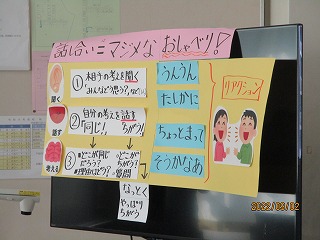 話し合い=マジメなおしゃべり!
聞く
① 相手の考えを聞く
「みんなどう思う?」
話す
② 自分の考えを話す
「同じ!」 ちがう!
考える
③ どこが同じだろう?
どこがちがう?
理由はどう?
質問
なっとく
やっぱりちがう
うんうん
たしかに
ちょっとまって
そうかなあ
リアクション
2022/09/02